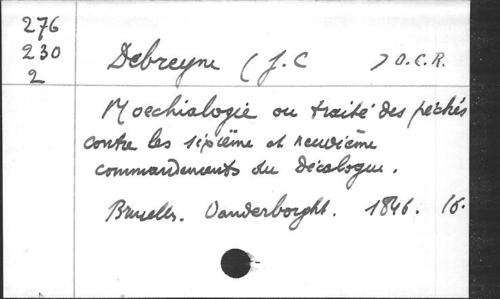 276
230
2
Debreyne (J.C ) O.C.R.
Moechialogie ou traité des péchés
contre les sixième et neuvième
commandements du Décalogue.
Bruxelles. Vanderborght. 1846. 16.